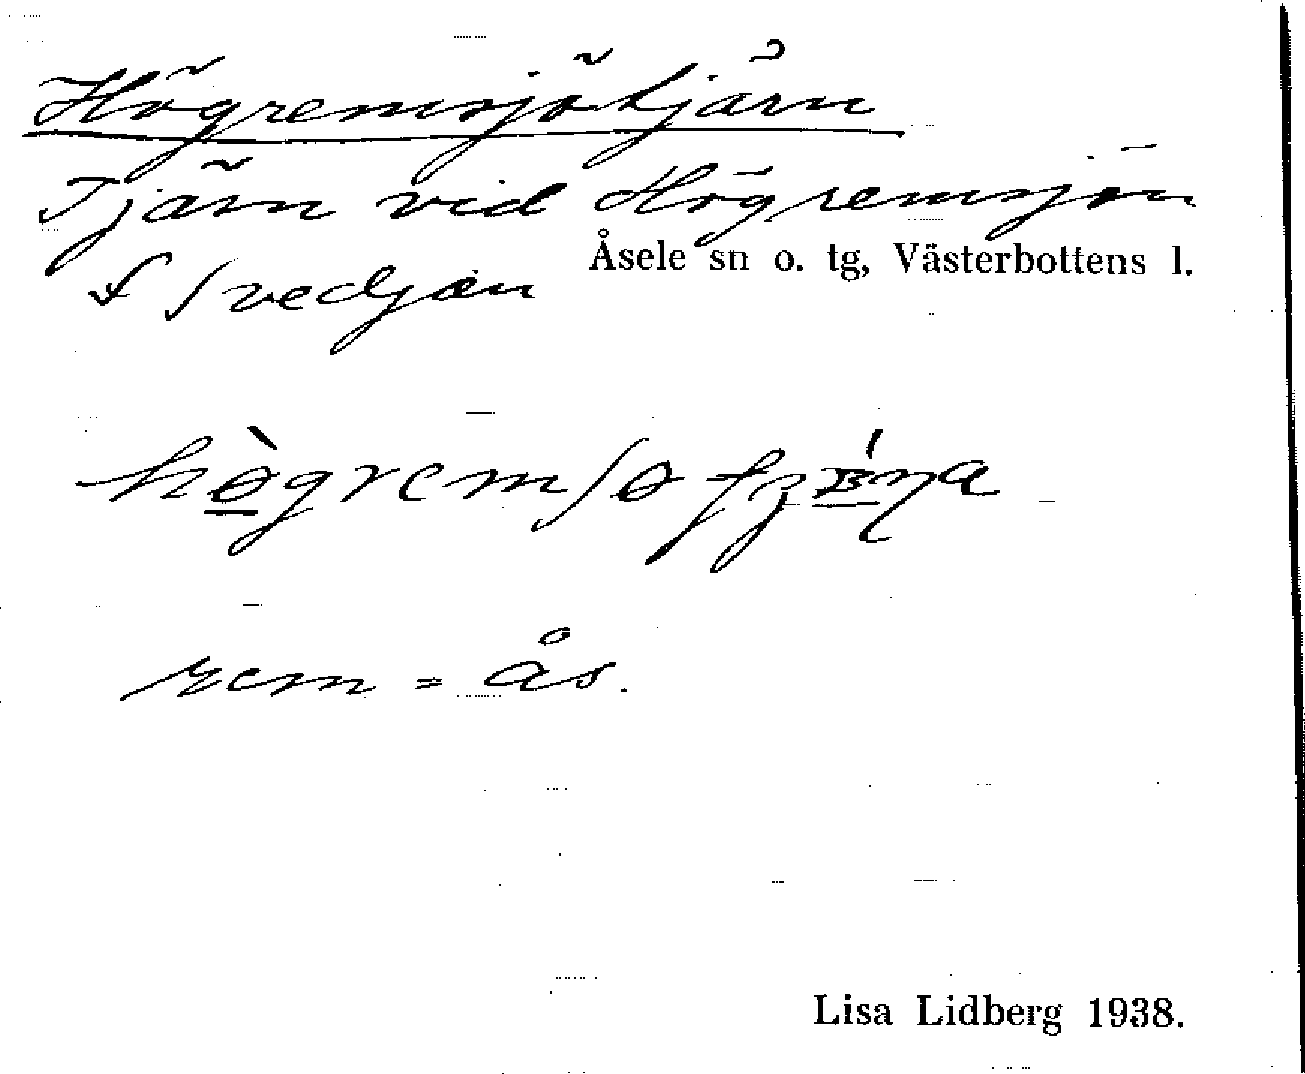 Högremsjötjärn
Tjärn vid Högremsjön
Åsele sn o. tg, Västerbottens l.
f Svedjan
rem = ås.
Lisa Lidberg 1938.